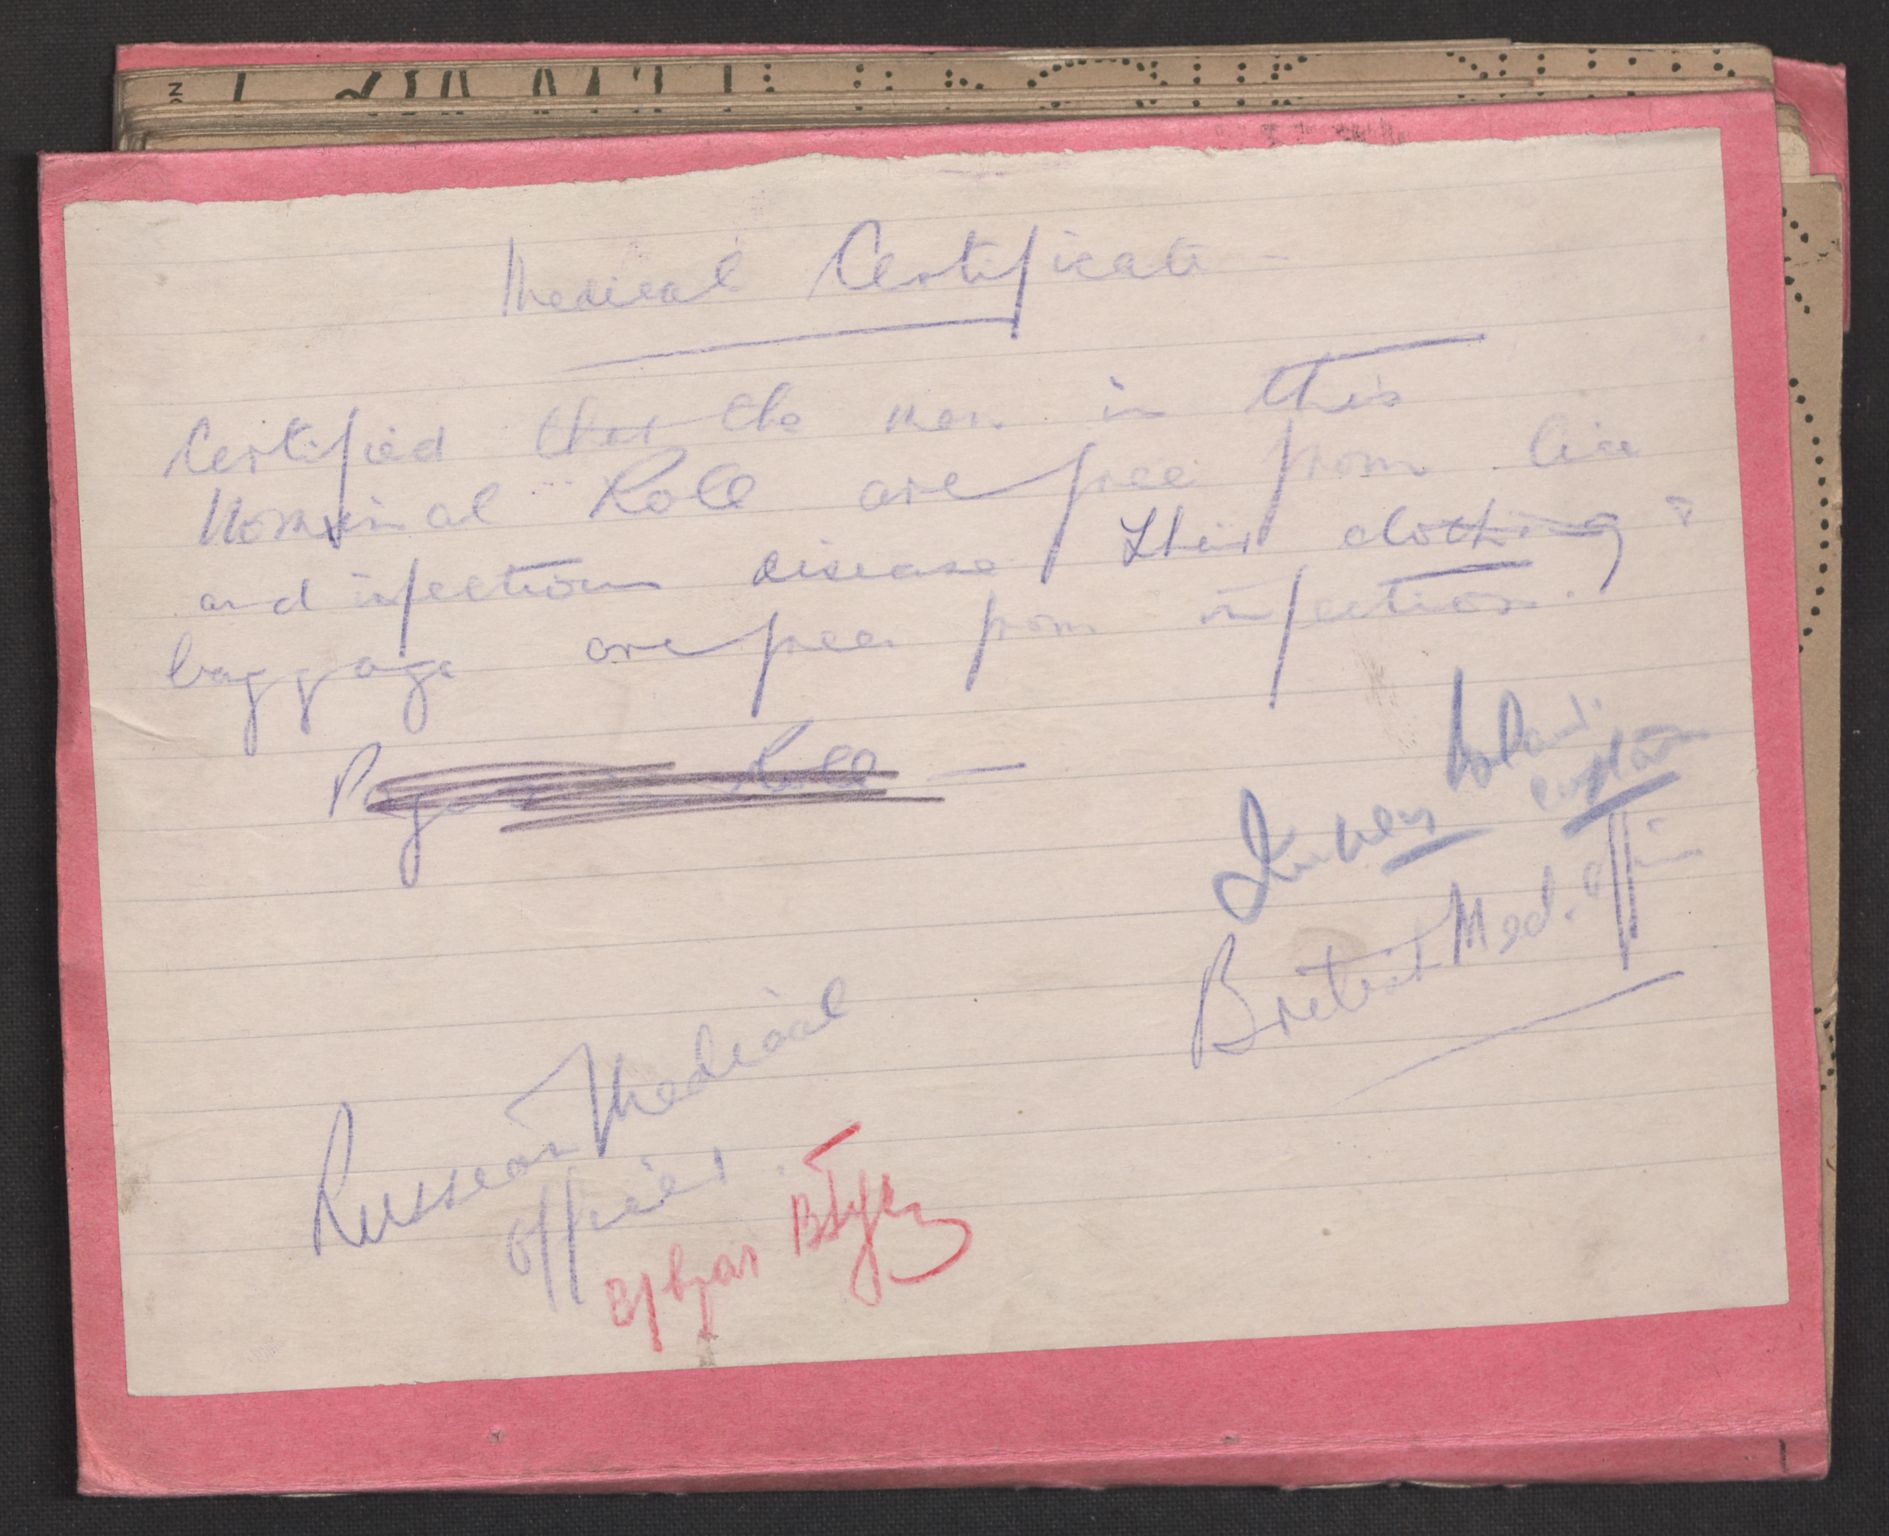 Medical Certificate -
Certified that the men in this
Nominal Roll are free from lice
and infectious disease. Their clothing &
baggage are free from infection.
Roll -
Captain
British Med. Offic
Russian Medical
Officer.